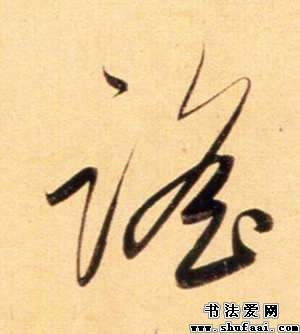 謠
书法爱网
www.shufaai.com